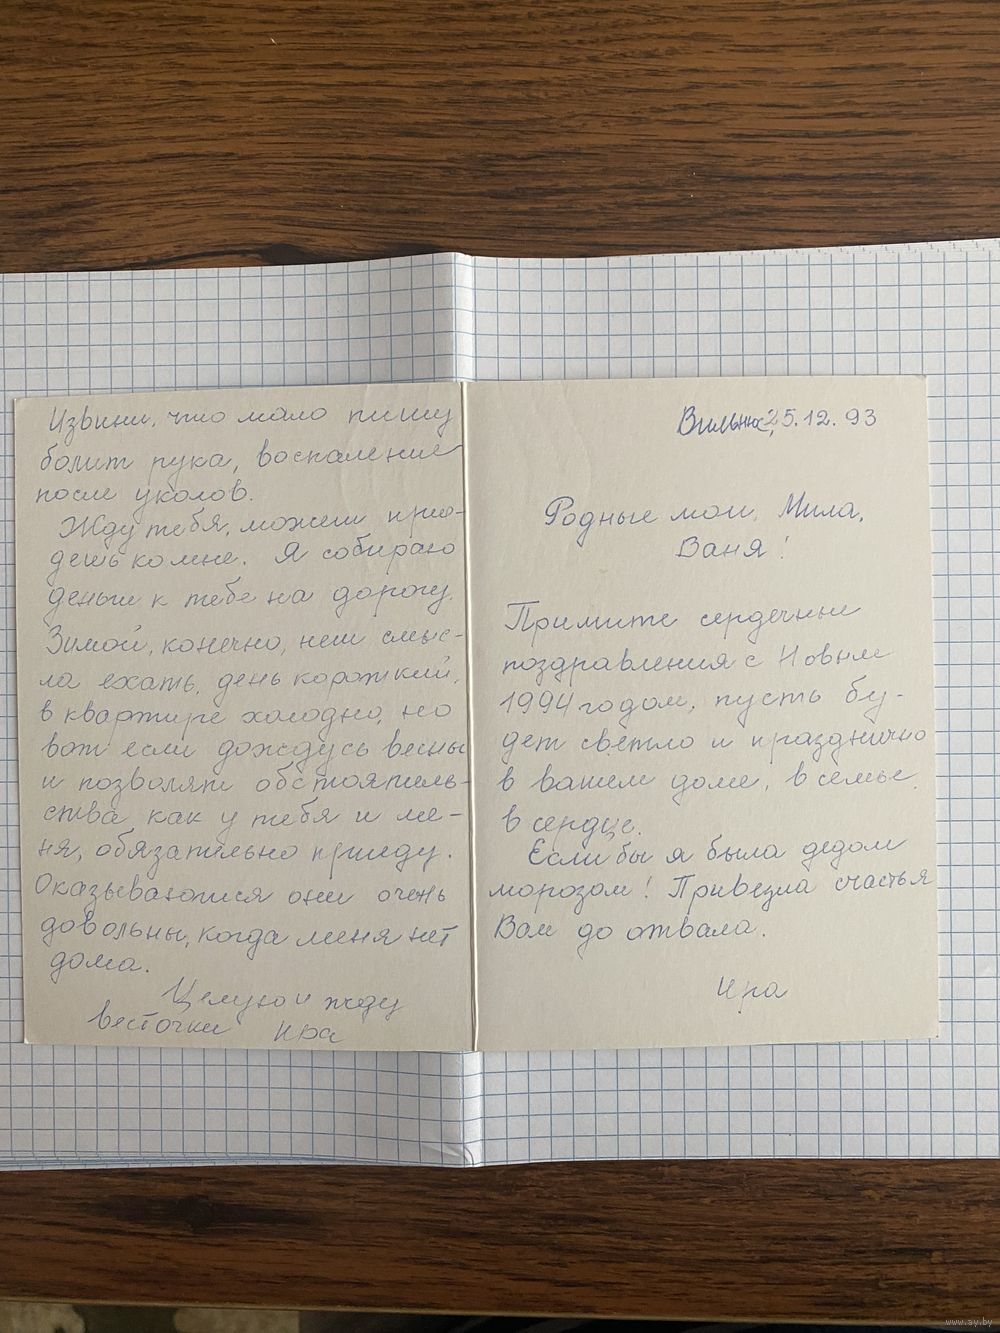 Извини, что мало пишу
болит рука, воспаление
после уколов.
Жду тебя, может прие-
дешь ко мне. Я собираю
деньги к тебе на дорогу.
Зимой, конечно, нет смыс-
ла ехать, день короткий,
в квартире холодно, но
вот если дождусь весны
и позволят обстоятель-
ства как у тебя и ме-
ня, обязательно приеду.
Оказываются они очень
довольны, когда меня нет
дома.
Целую и жду
весточки Ира
Вильнюс, 25.12.93
Родные мои, Мила,
Ваня!
Примите сердечные
поздравления с Новым
1994 годом, пусть бу-
дет светло и празднично
в вашем доме, в семье,
в сердце.
Если бы я была дедом
морозом! Привезла счастья
Вам до отвала.
Ира
www.ay.by